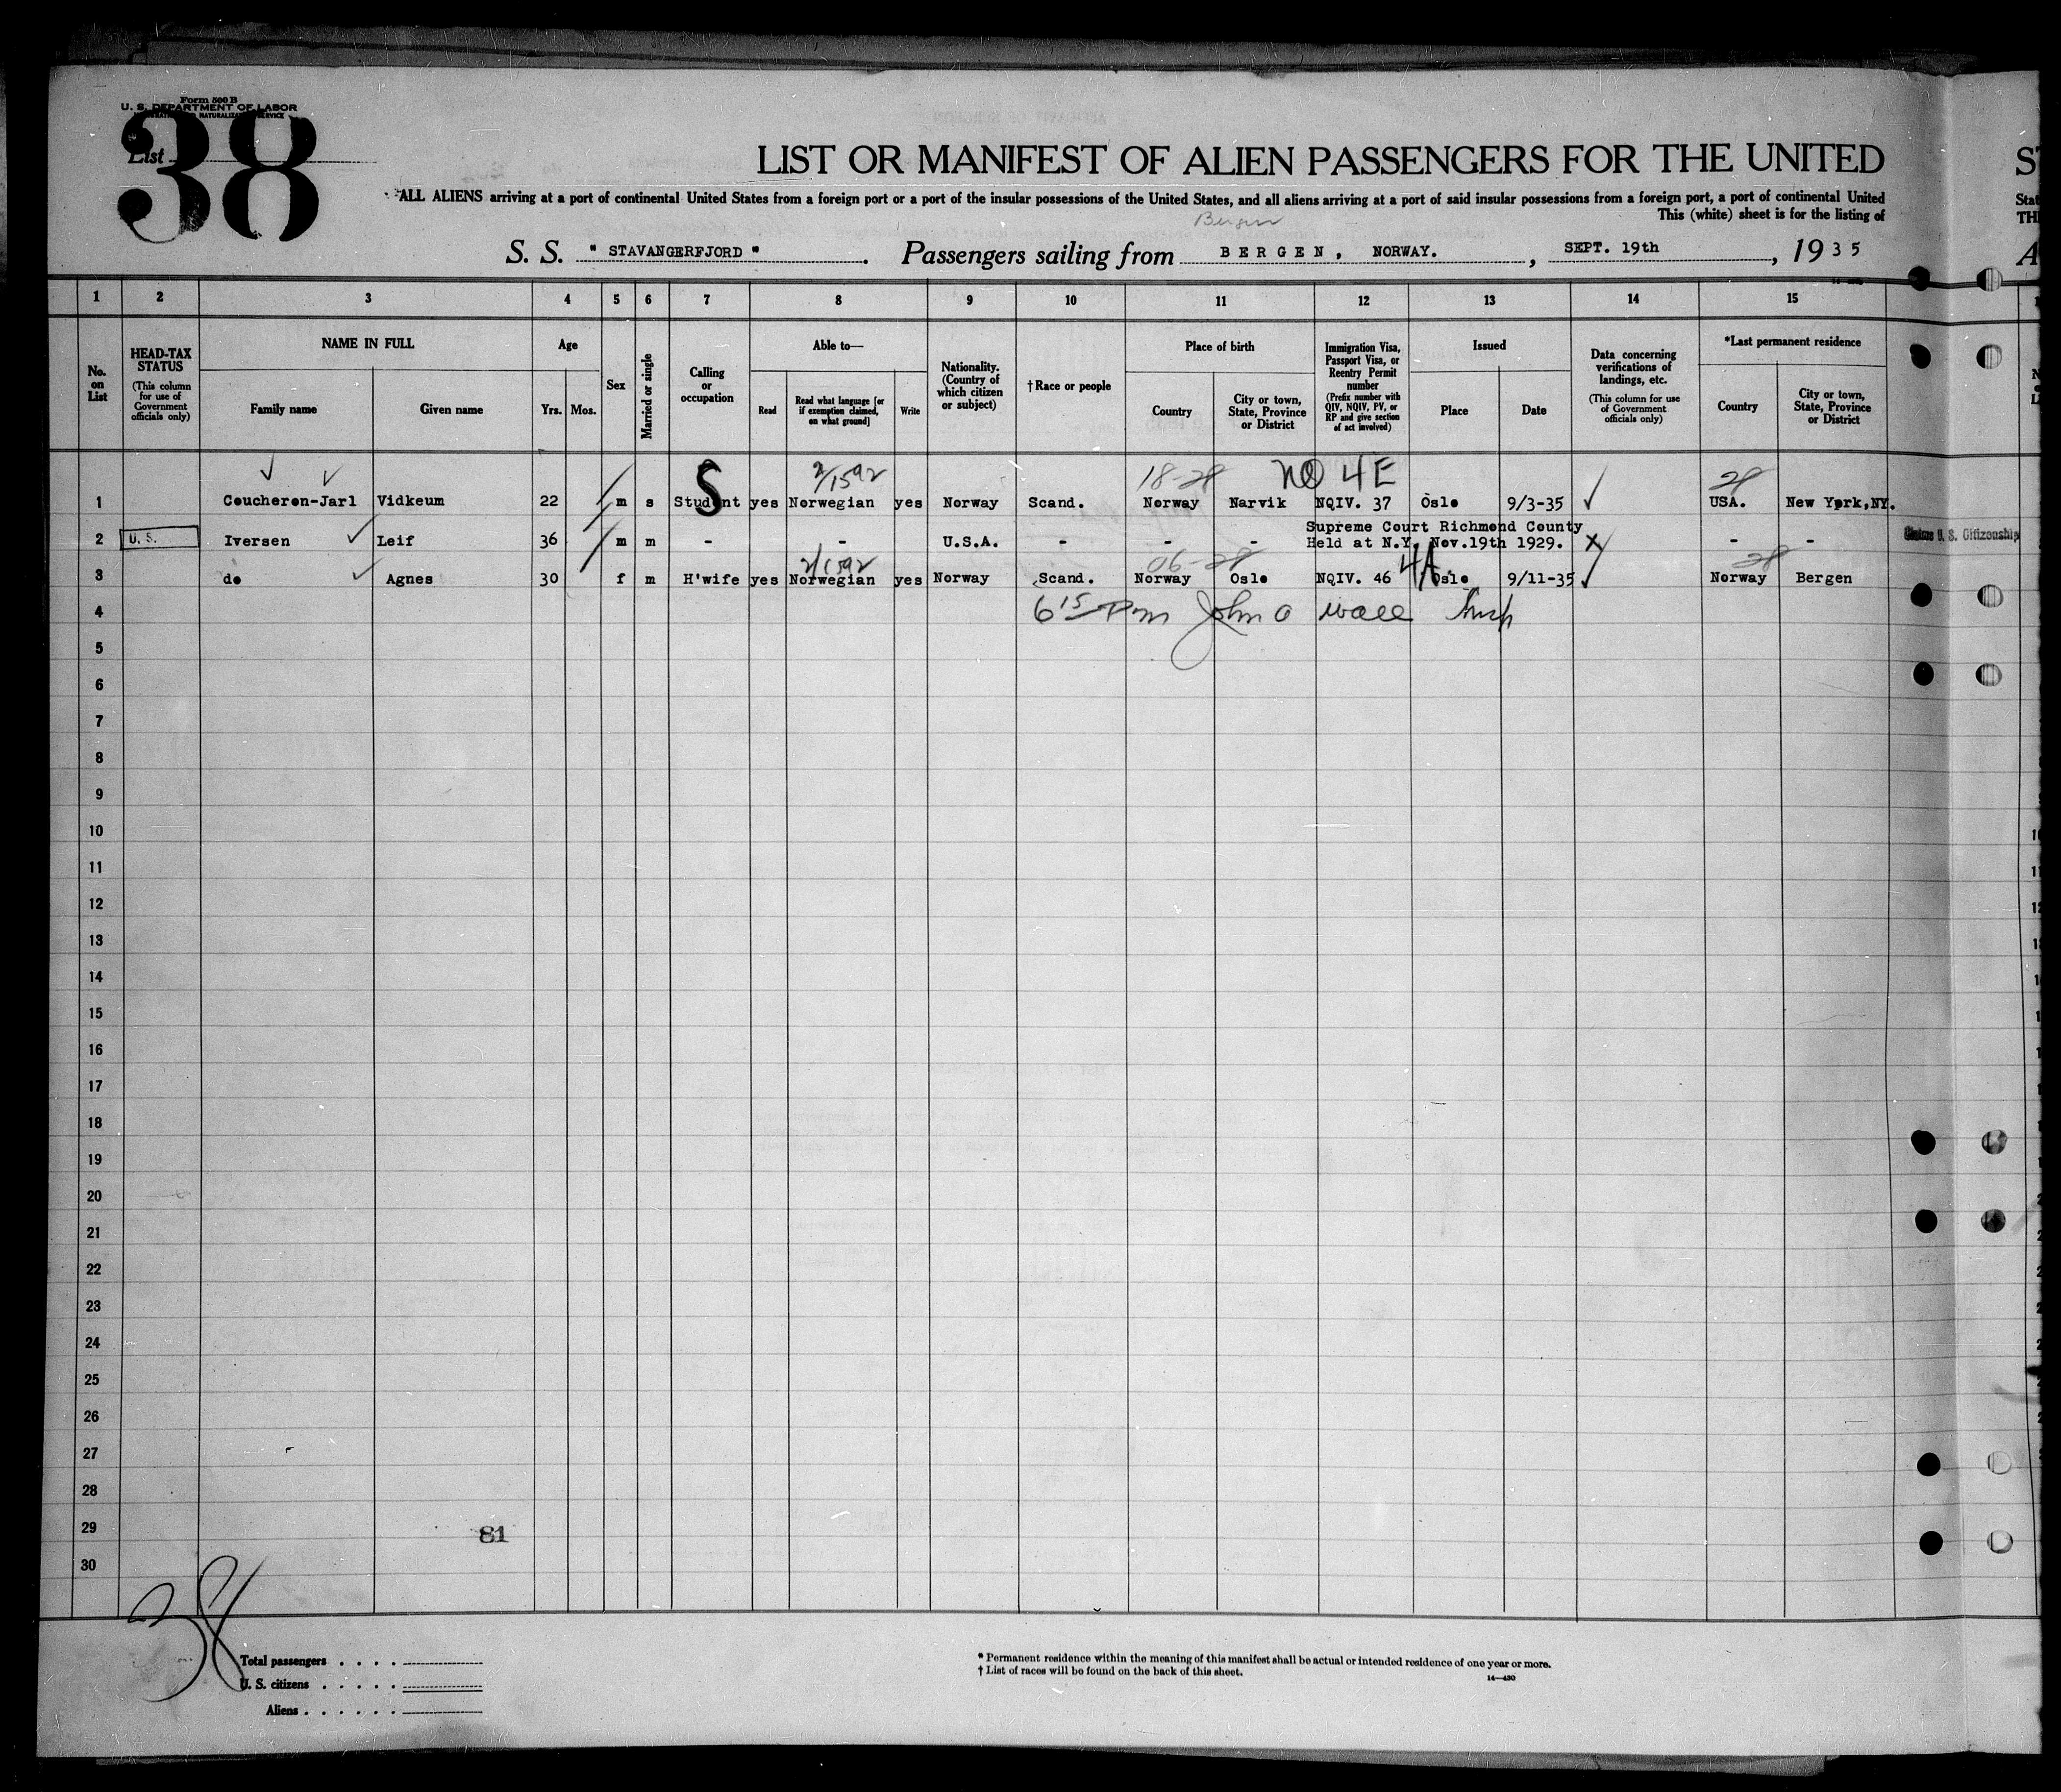 Form 500 B
U. S. DEPARTMENT OF LABOR
NATURALIZATION SERVICE
List
38
LIST OR MANIFEST OF ALIEN PASSENGERS FOR THE UNITED
ALL ALIENS arriving at a port of continental United States from a foreign port or a port of the insular possessions of the United States, and all aliens arriving at a port of said insular possessions from a foreign port, a port of continental United
This (white) sheet is for the listing of
Bergen
S. S. " STAVANGERFJORD " . Passengers sailing from BERGEN, NORWAY. , SEPT. 19th , 1935
1 2 3 4 5 6 7 8 9 10 11 12 13 14 15
No. on List
HEAD-TAX STATUS
(This column for use of Government officials only)
NAME IN FULL
Family name
Given name
Age
Yrs. Mos.
Sex
Married or single
Calling or occupation
Able to—
Read
Read what language [or if exemption claimed, on what ground]
Write
Nationality. (Country of which citizen or subject)
†Race or people
Place of birth
Country
City or town, State, Province or District
Immigration Visa, Passport Visa, or Reentry Permit number
(Prefix number with QIV, NQIV, PV, or RP and give section of act involved)
Issued
Place
Date
Data concerning verifications of landings, etc.
(This column for use of Government officials only)
*Last permanent residence
Country
City or town, State, Province or District
S 2/1592 18-28 NQ 4E 28
1 Coucheron-Jarl Vidkeum 22 m s Student yes Norwegian yes Norway Scand. Norway Narvik NQIV. 37 Oslo 9/3-35 USA. New York,NY.
Supreme Court Richmond County
2 U. S. Iversen Leif 36 m m - - U.S.A. - - - Held at N.Y. Nov.19th 1929. X - - U. S. Citizenship
2/1592 06-28 4A 28
3 do Agnes 30 f m H'wife yes Norwegian yes Norway Scand. Norway Oslo NQIV. 46 Oslo 9/11-35 Norway Bergen
4 6 15 Pm John O Wall Insp
5
6
7
8
9
10
11
12
13
14
15
16
17
18
19
20
21
22
23
24
25
26
27
28
29 81
30
38
Total passengers . . . .
U. S. citizens . . . . .
Aliens . . . . . .
* Permanent residence within the meaning of this manifest shall be actual or intended residence of one year or more.
† List of races will be found on the back of this sheet.
14—430